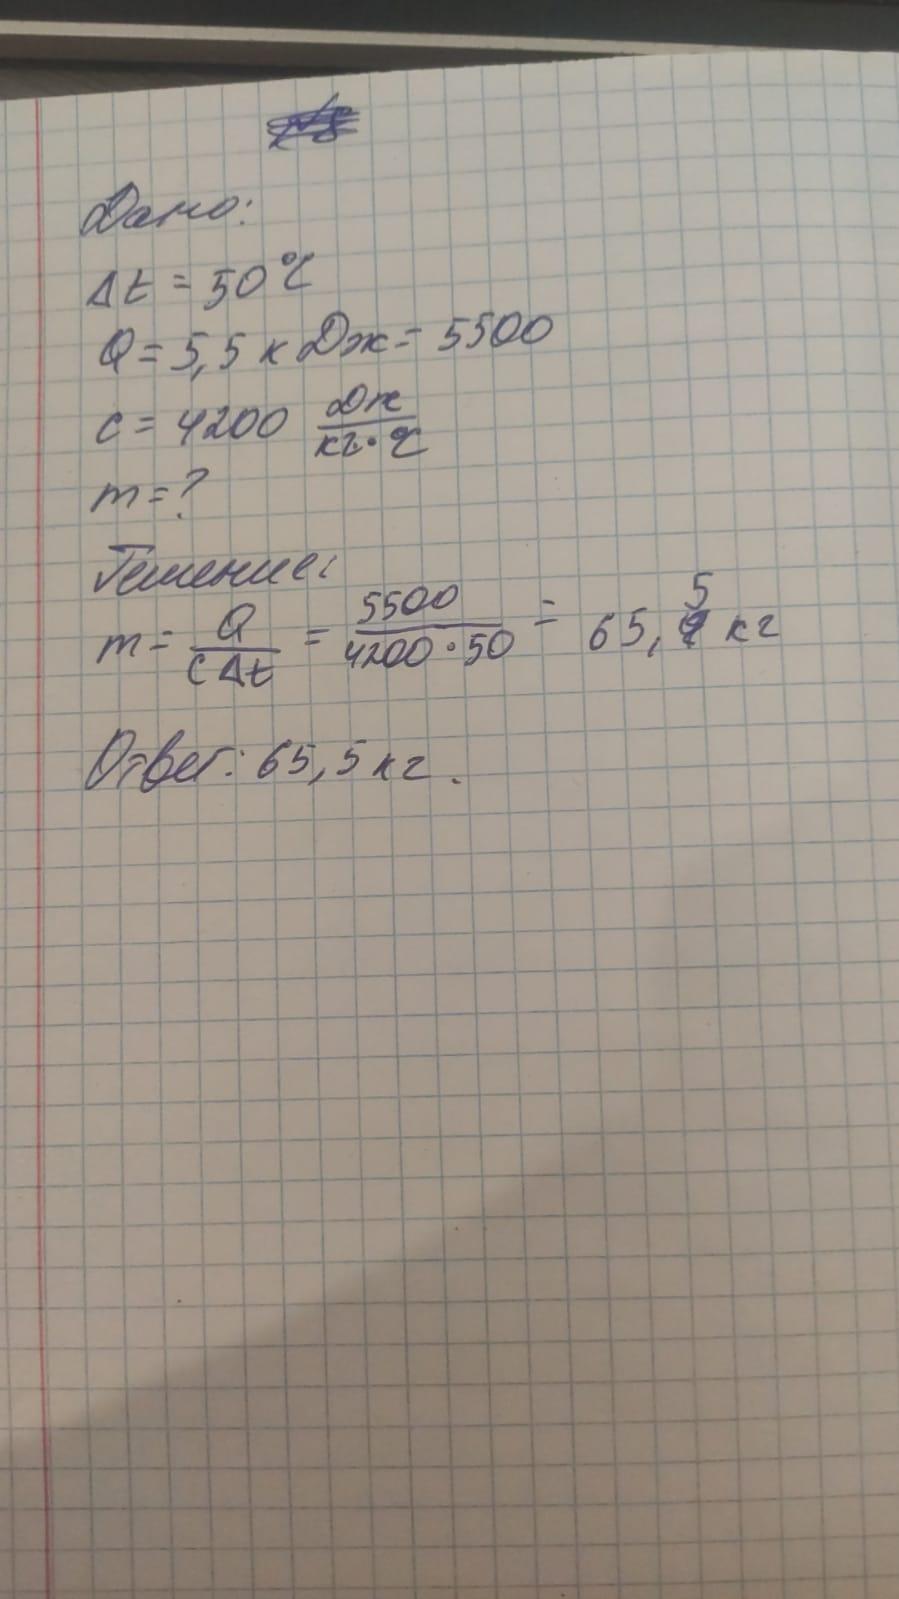 Дано:
Δt = 50℃
Q = 5,5 кДж = 5500
c = 4200 Дж/кг·℃
m = ?
Решение:
m = Q/cΔt = 5500/4200·50 = 65,5 кг
Ответ: 65,5 кг.